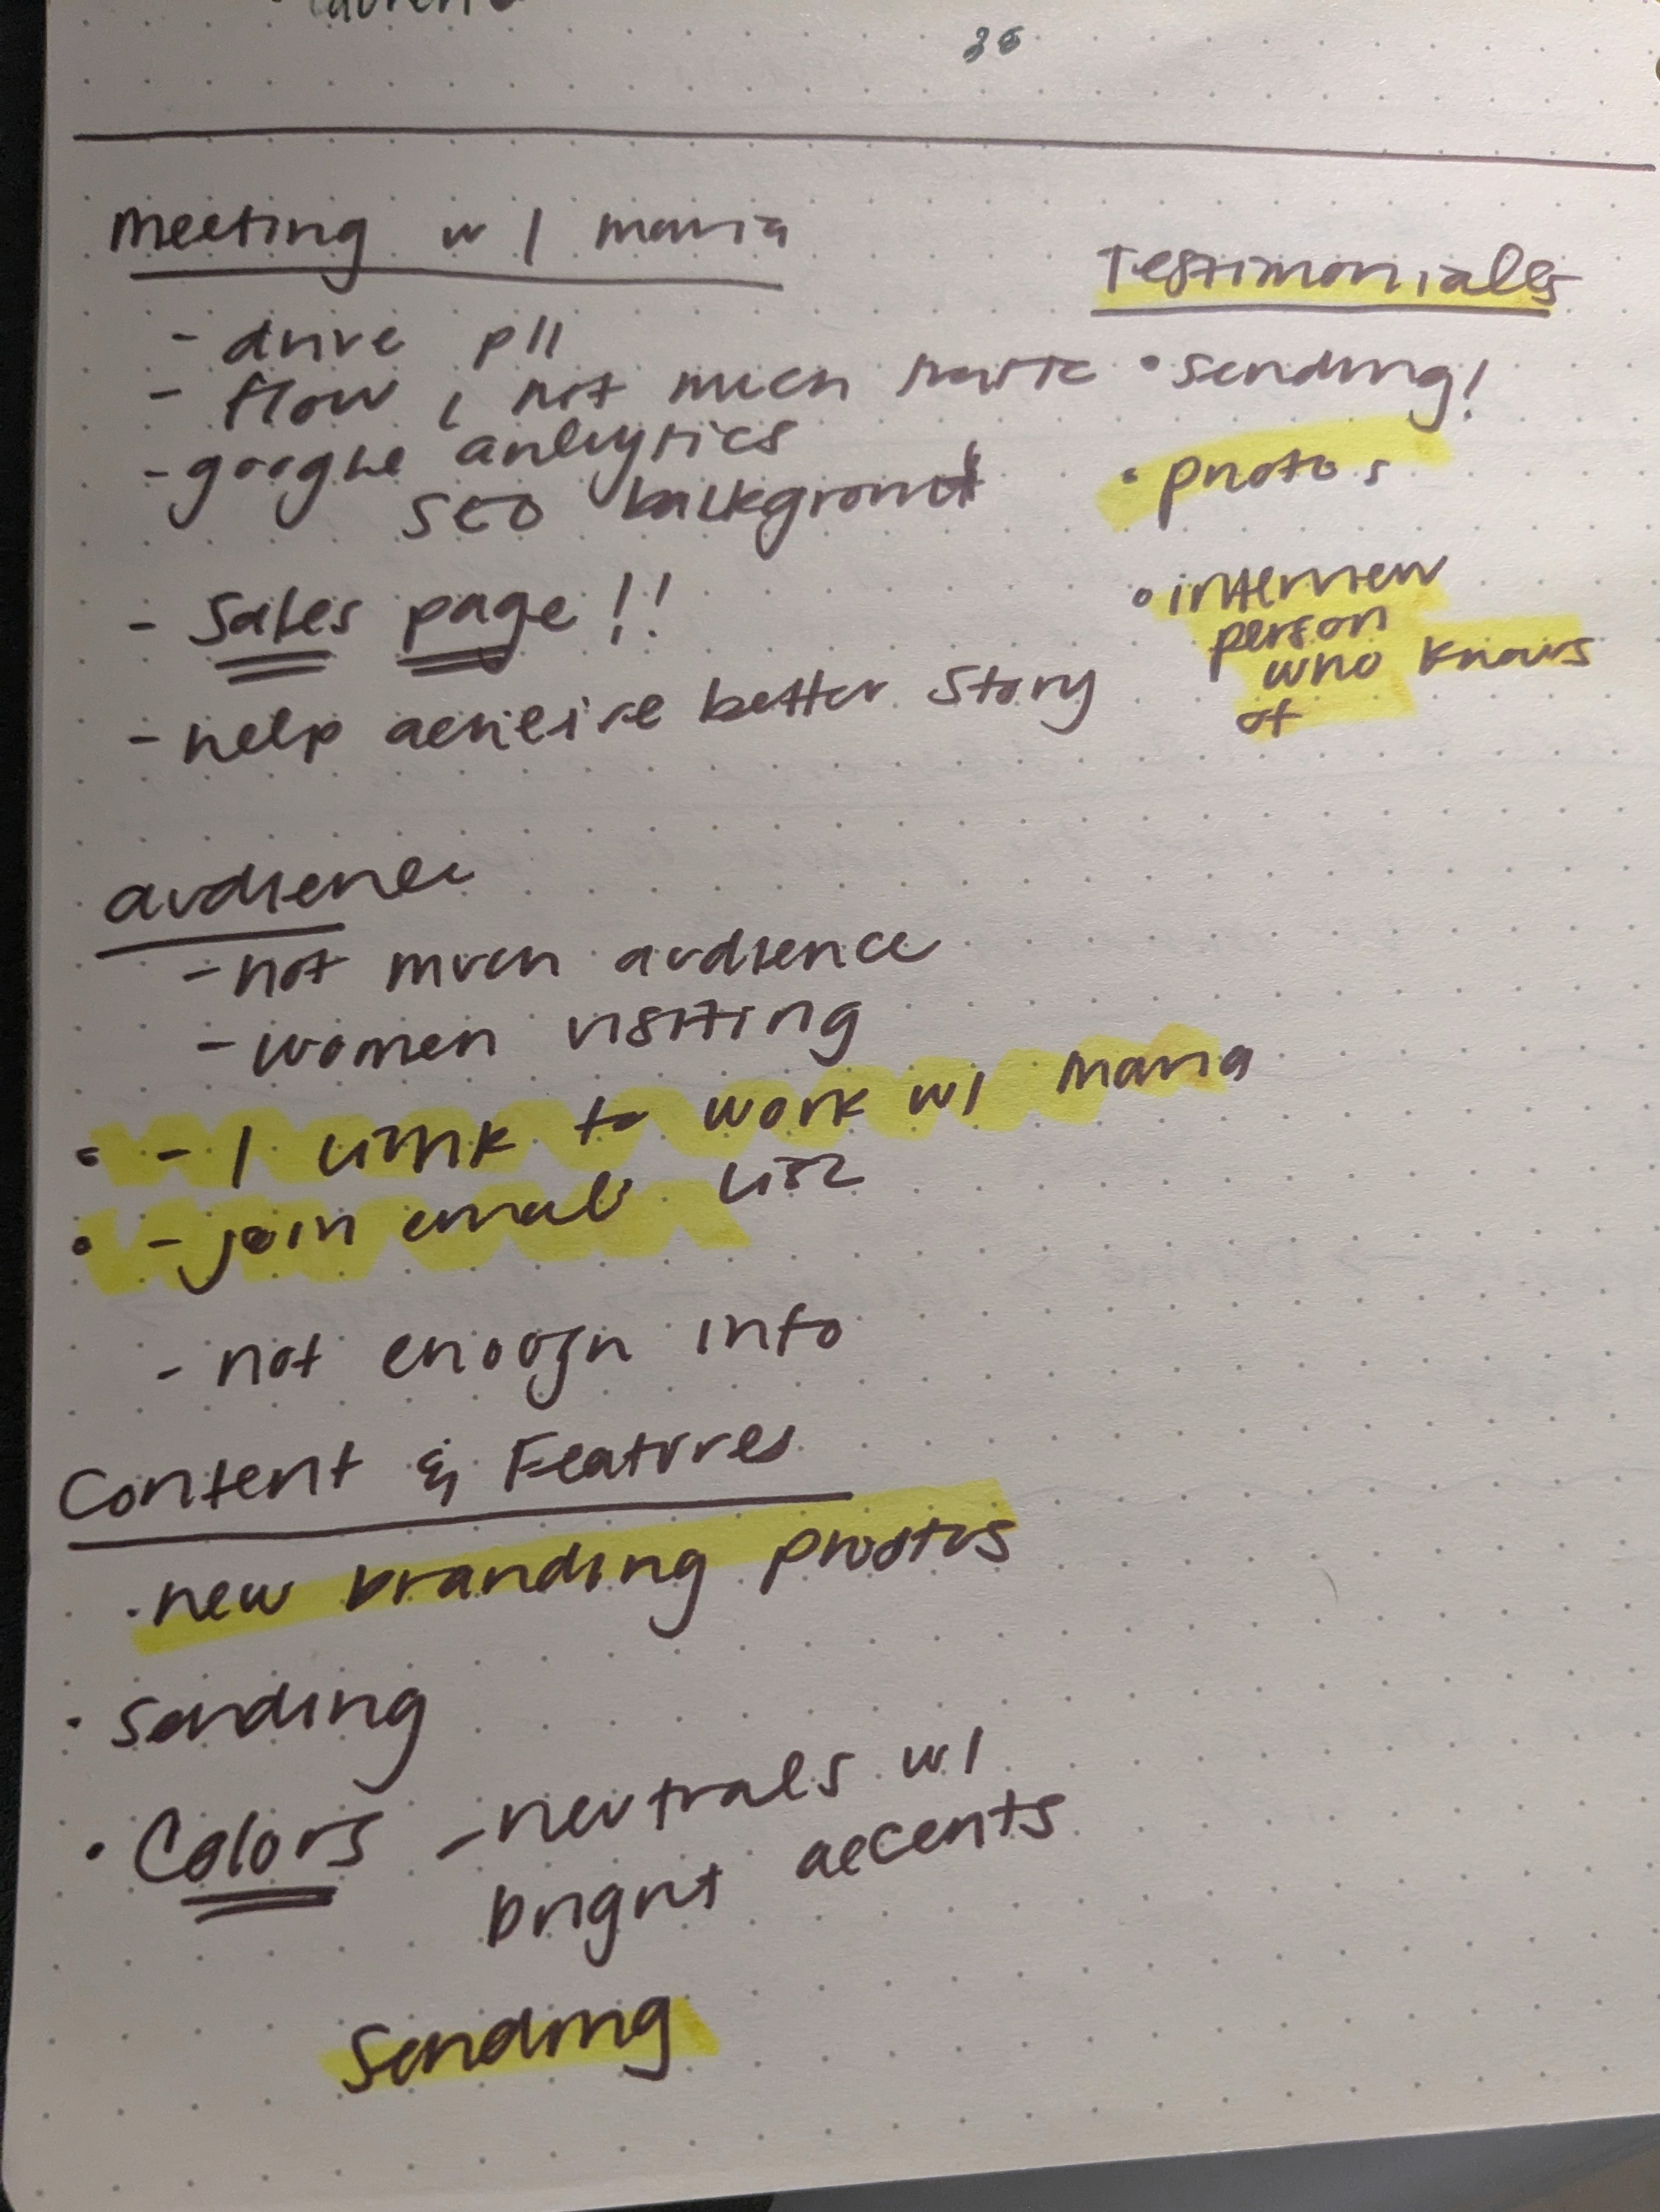 36
meeting w/ maria
- drive
- flow, not much
- google anlaytics
SEO background
- Sales page!!
- help acheive better story
Testimonials
• sending!
• photos
• interview
person
who knows
of
audience
- not much audience
- women visiting
• - 1 to work w/ maria
• - join email list
- not enough info
Content & Features
• new branding photos
• sending
• Colors - neutrals w/
bright accents
Sending